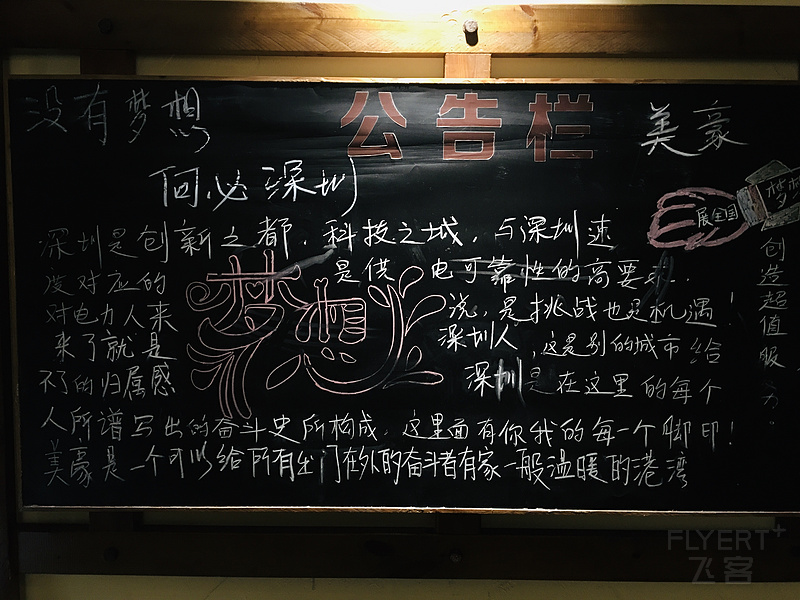 没有梦想
公告栏
美豪
何必深圳
深圳是创新之都，科技之城，与深圳速
度对应的 是供电可靠性的高要求..
对电力人来 说，是挑战也是机遇！
来了就是 深圳人，这是别的城市给
不了的归属感 深圳是在这里的每个
人所谱写出的奋斗史所构成，这里面有你我的每一个脚印！
美豪是一个可以给所有出门在外的奋斗者有家一般温暖的港湾
梦想
展全国
梦想
创造超值服务"
FLYERT+
飞客